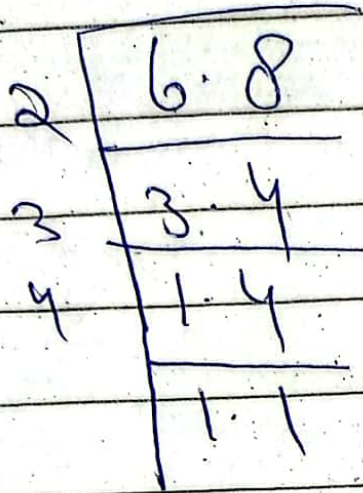 2 6. 8
3 3. 4
4 1. 4
1. 1